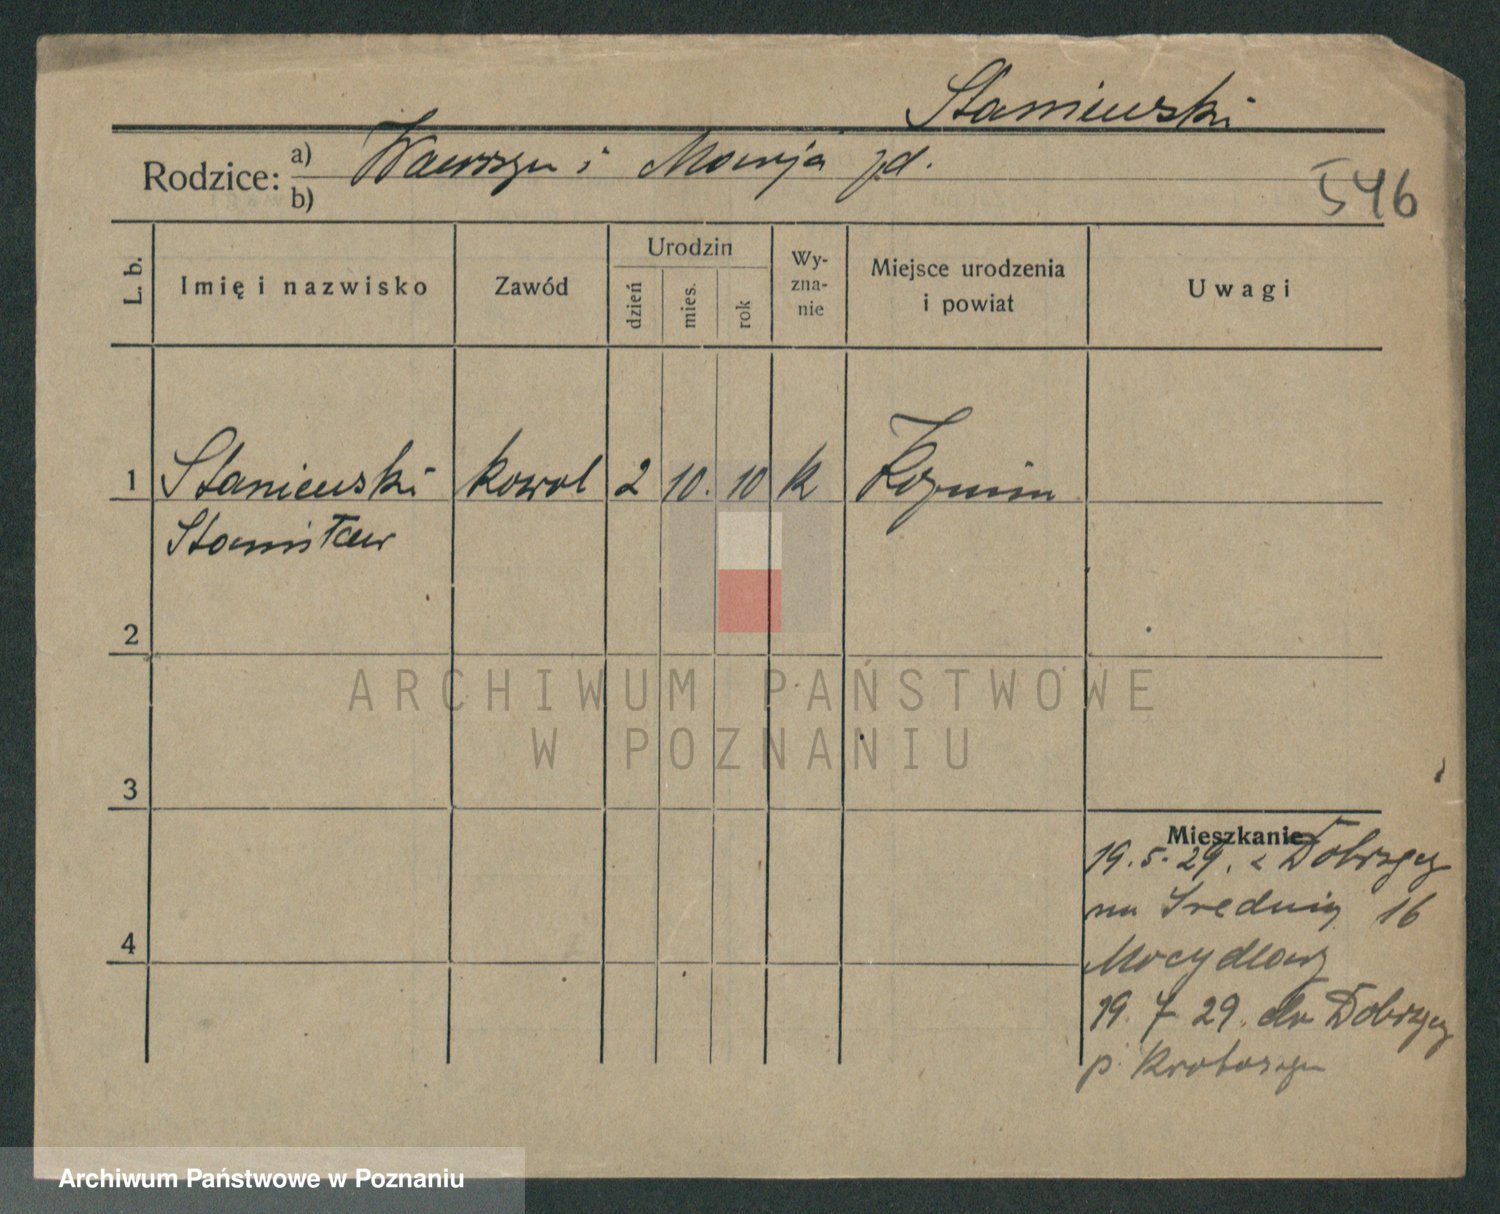 Staniewski
Rodzice: a) Wawrzyn i Marja jd.
b)
546
L. b.
Imię i nazwisko
Zawód
Urodzin
dzień
mies.
rok
Wy-
zna-
nie
Miejsce urodzenia
i powiat
Uwagi
1 Staniewski kowal 2 10. 10 k Koźmin
Stanisław
2
3
4
Mieszkanie
19.5.29. z Dobrzycy
na Średnią 16
19. 7 29. do Dobrzycy
p. Krotoszyn
ARCHIWUM PAŃSTWOWE
W POZNANIU
Archiwum Państwowe w Poznaniu